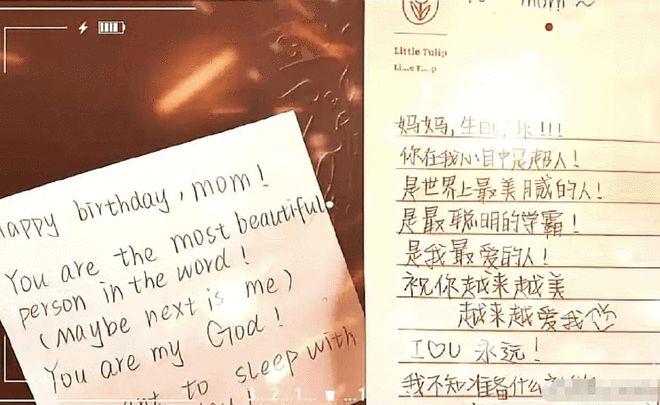 Happy birthday, mom!
You are the most beautiful
person in the word!
(Maybe next is me)
You are my God!
to sleep with
mom~
Little Tulip
妈妈,生日 乐!!!
你在我心目中是超人!
是世界上最美 的人!
是最聪明的学霸!
是我最爱的人!
祝你越来越美
越来越爱我
I♡U 永远!
我不知准备什么